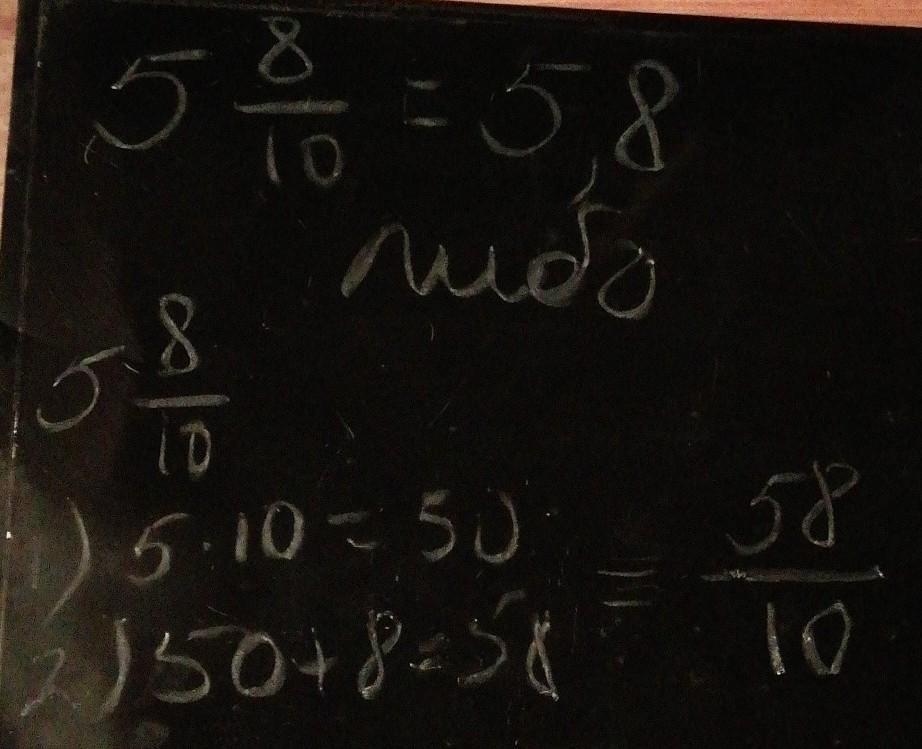 5 8/10 = 5,8
либо
5 8/10
1) 5·10 = 50
2) 50+8=58 = 58/10